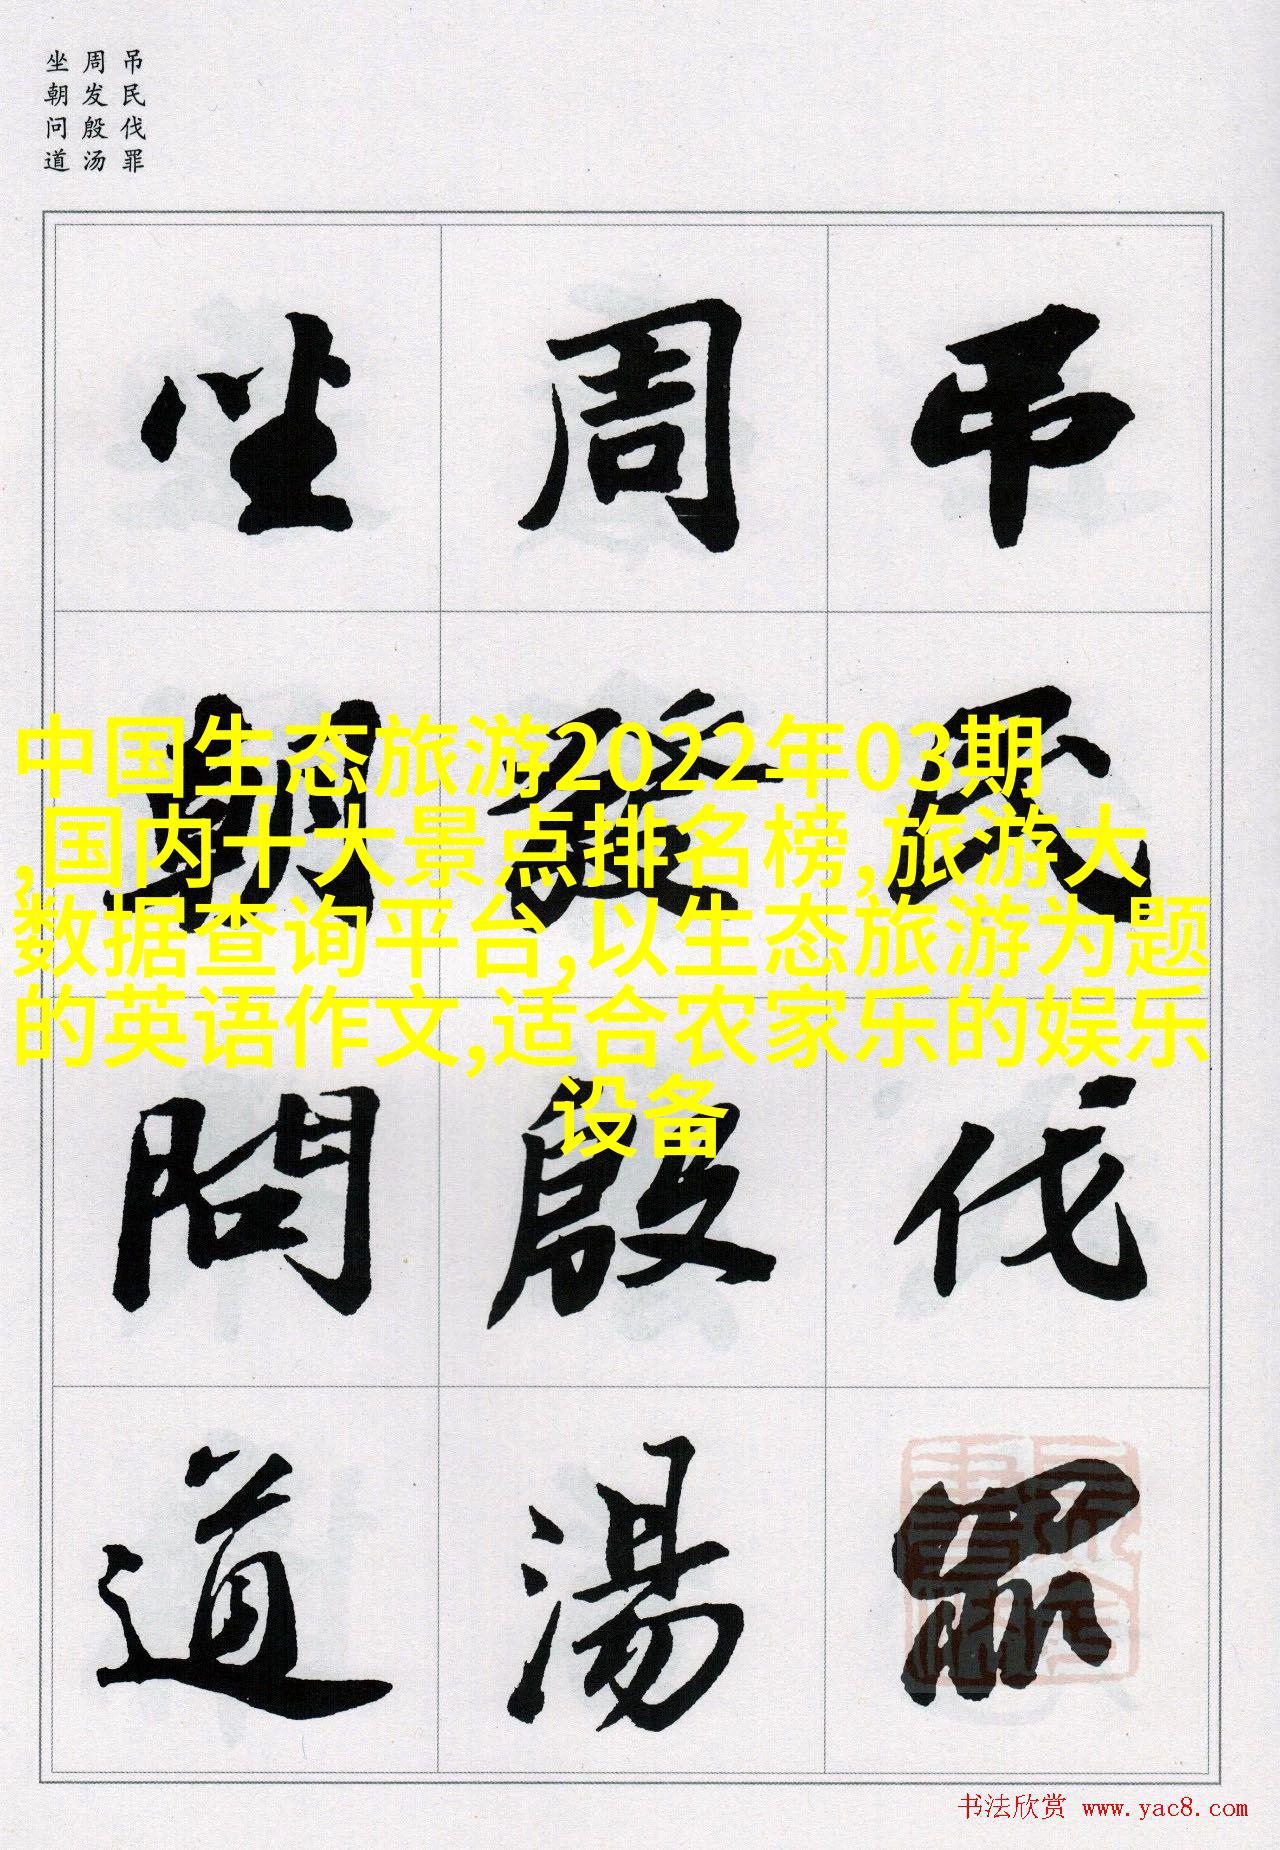 吊民伐罪
周发殷汤
坐朝问道
吊民伐罪
周發殷湯
坐朝問道
中国生态旅游2022年03期
,国内十大景点排名榜,旅游大
数据查询平台,以生态旅游为题
的英语作文,适合农家乐的娱乐
设备
书法欣赏 www.yac8.com